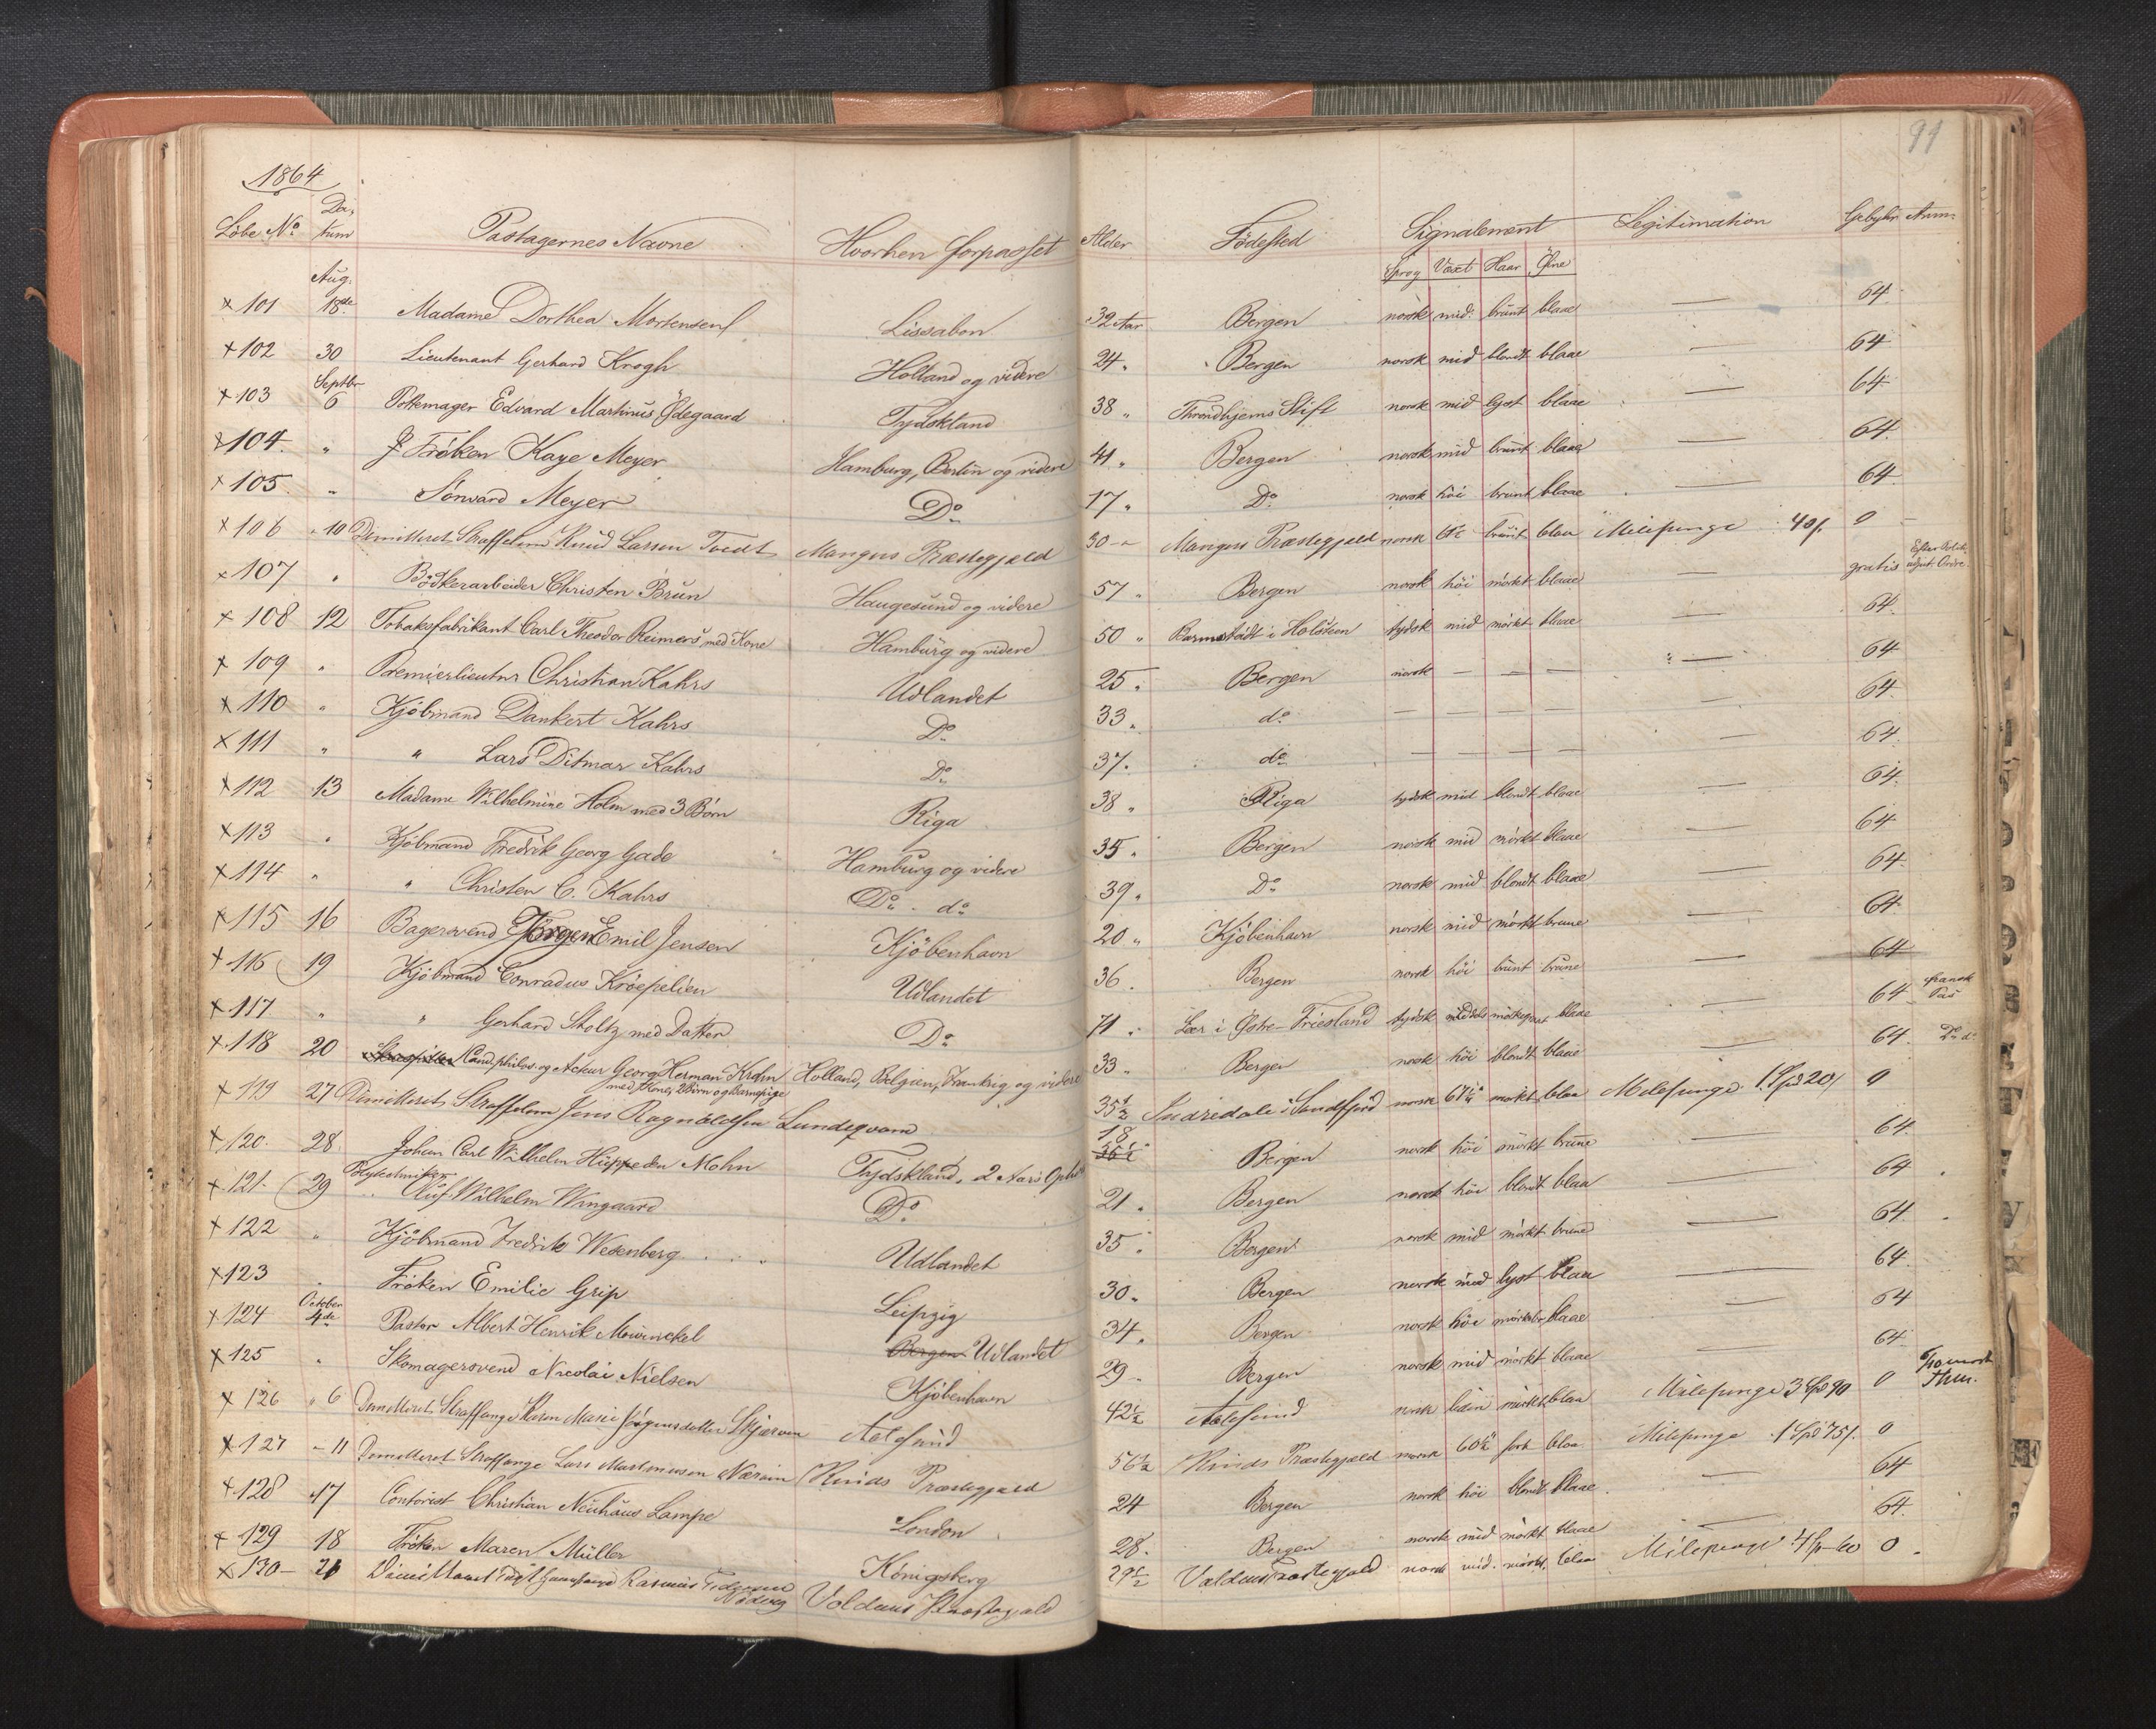 91
1864
Löbe No Da,tum Passagernes Navne Hvorhen forpasset Alder Födested Signalement Legitimation Gebyhr Anm.
Sprog Væxt Haar Öine
Aug.
x 101 18de Madame Dorthea Mortensen Lissabon 32 Aar Bergen norsk mid. brünt blaae — 64
x 102 30 Lieutenant Gerhard Krogh Holland og videre 24 " Bergen norsk mid blondt blaae — 64
Septbr
x 103 6 Potemager Edvard Martinus Ödegaard Tydskland 38 " Throndhjems Stift norsk mid lyst blaae — 64
x 104. " Fröken Kaye Meyer Hamburg, Berlin og videre 41 " Bergen norsk mid brünt blaae — 64.
x 105. " Sörvard Meyer Do 17 " Do norsk höi brünt blaae — 64
x 106 " 10 Dimitteret Straffelem Knud Larsen Tvedt Mangers Præstegjæld 30 " Mangers Præstegjæld norsk brünt blaa Milepenge 40/. 0
x 107 " Bödkerarbeider Christen Brün Haugesünd og videre 57 " Bergen norsk höi mörkt blaae — gratis Efter Politi Ordre
x 108 12 Tobaksfabrikant Carl Theodor Reimers med Kone Hamburg og videre 50 " Barmstädt i Holsteen tydsk mid mörkt blaae — 64.
x 109 " Premierlieutnr Christian Kahrs Udlandet 25 " Bergen norsk — — — — 64
x 110 " Kjöbmand Dankert Kahrs Do 33 " do — — — — — 64.
x 111 " " Lars Ditmar Kahrs Do 37. do — — — — — 64.
x 112 13 Madame Wilhelmine Holm med 3 Börn Riga 38 " Riga tydsk mid blondt blaae — 64.
x 113 " Kjöbmand Fredrik Georg Gade Hamburg og videre 35 " Bergen norsk mid mörkt blaae — 64
x 114 " " Christen C. Kahrs Do do 39 " Do norsk mid blondt blaae — 64.
x 115 16 Bagersvend Jörgen Emil Jensen Kjöbenhavn 20 " Kjöbenhavn norsk mid mörkt brune — 64.
x 116 19 Kjöbmand Conradus Kröepelien Udlandet 36 . Bergen norsk höi brünt brüne — 64
x 117 " " Gerhard Stoltz med Datter Do 71 " Leer i Östre-Friesland tydsk middels blaae — 64 fransk Pas
x 118 20 Cand. philos. og Acteur Georg Herman Krohn Holland, Belgien, Frankrig og videre 33 " Bergen norsk höi blondt blaae — 64. Do do
med Kone, 2 Börn og Barnepige
x 119 27 Dimitteret Straffelem Jens Ragnoldsen Lundeqvam 35½ Indredale i Söndfjord norsk mörkt blaa Milepenge 1 Spd 20/ 0
x 120. 28. Johan Carl Wilhelm Hüppeden Mohn Tydskland, 2 Aars Ophold 18 Bergen norsk höi mörkt brüne — 64.
Polytechniker
x 121. 29 Wilhelm Wingaard Do. 21 " Bergen norsk höi blondt blaa — 64
x 122 " Kjöbmand Fredrik Wesenberg Udlandet 35 " Bergen norsk mid mörkt brüne — 64.
x 123 " Fröken Emilie Grip Leipzig 30 " Bergen norsk mid lyst blaa — 64.
October
x 124 4de Pastor Albert Henrik Mowinckel Bergen Udlandet 34 " Bergen norsk höi blaae — 64
x 125 " Skomagersvend Nicolai Nielsen Kjöbenhavn 29 " Bergen norsk mid mörkt blaae — 64.
x 126 " 6 Dimitteret Straffange Karen Marie Jörgensdatter Skjærven Aalesund 42½ Aalesund norsk liden mörkt blaa Milepenge 3 Spd 90 0
x 127 – 11 Dimitteret Straffange Lars Martinusen Kinds Præstegjæld 56½ Kinds Præstegjæld norsk sort blaa Milepenge 1 Spd 75/. 0
x 128 17 Contorist Christian Neuhaus Lampe London 24 Bergen norsk höi blondt blaae — 64
x 129 18 Fröken Maren Müller Königsberg 28. Bergen norsk mid mörkt blaae — 64.
x 130 – 21 Rasmus Voldens Præstegjæld 29½ Voldens Præstegjæld norsk mid. mörkt blaa Milepenge 0